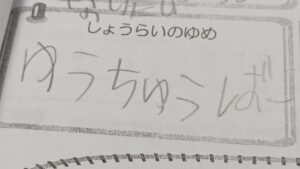 しょうらいのゆめ
ゆうちゅうばー